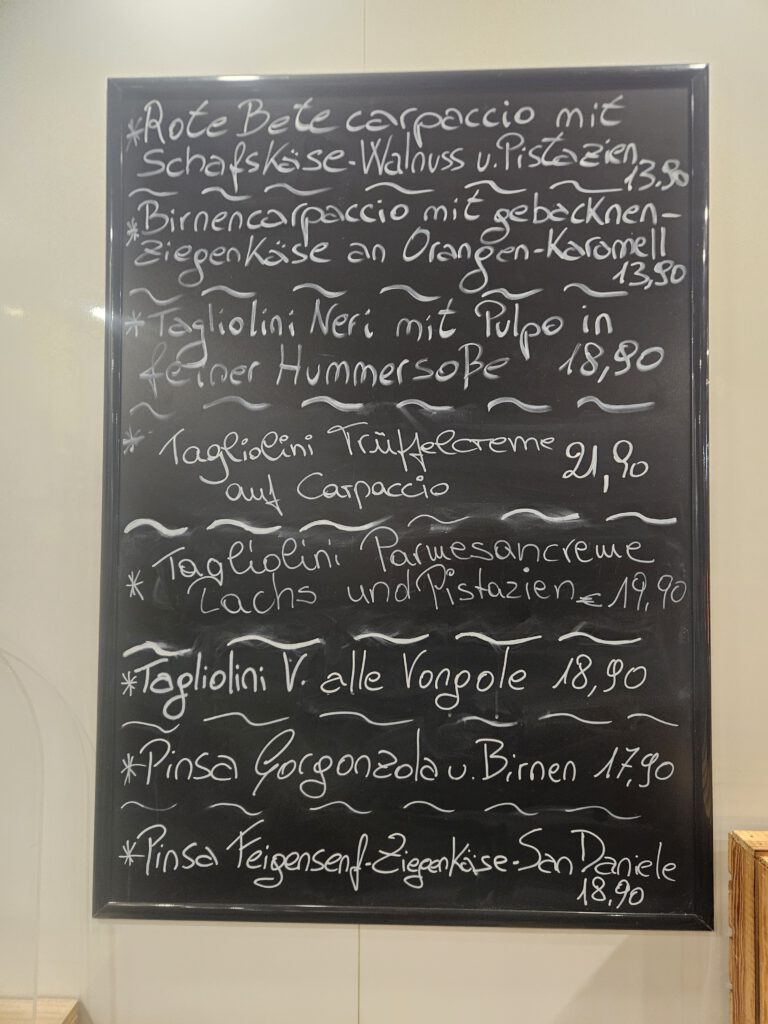 *Rote Bete carpaccio mit
Schafskäse-Walnuss u. Pistazien
13.90
*Birnencarpaccio mit gebacknen-
Ziegenkäse an Orangen-Karamell
13,90
*Tagliolini Neri mit Pulpo in
feiner Hummersoße 18,90
* Tagliolini Trüffelcreme 21,90
auf Carpaccio
* Tagliolini Parmesancreme
Lachs und Pistazien € 19,90
*Tagliolini V. alle Vongole 18,90
*Pinsa Gorgonzola u. Birnen 17,90
*Pinsa Feigensenf-Ziegenkäse-San Daniele
18,90